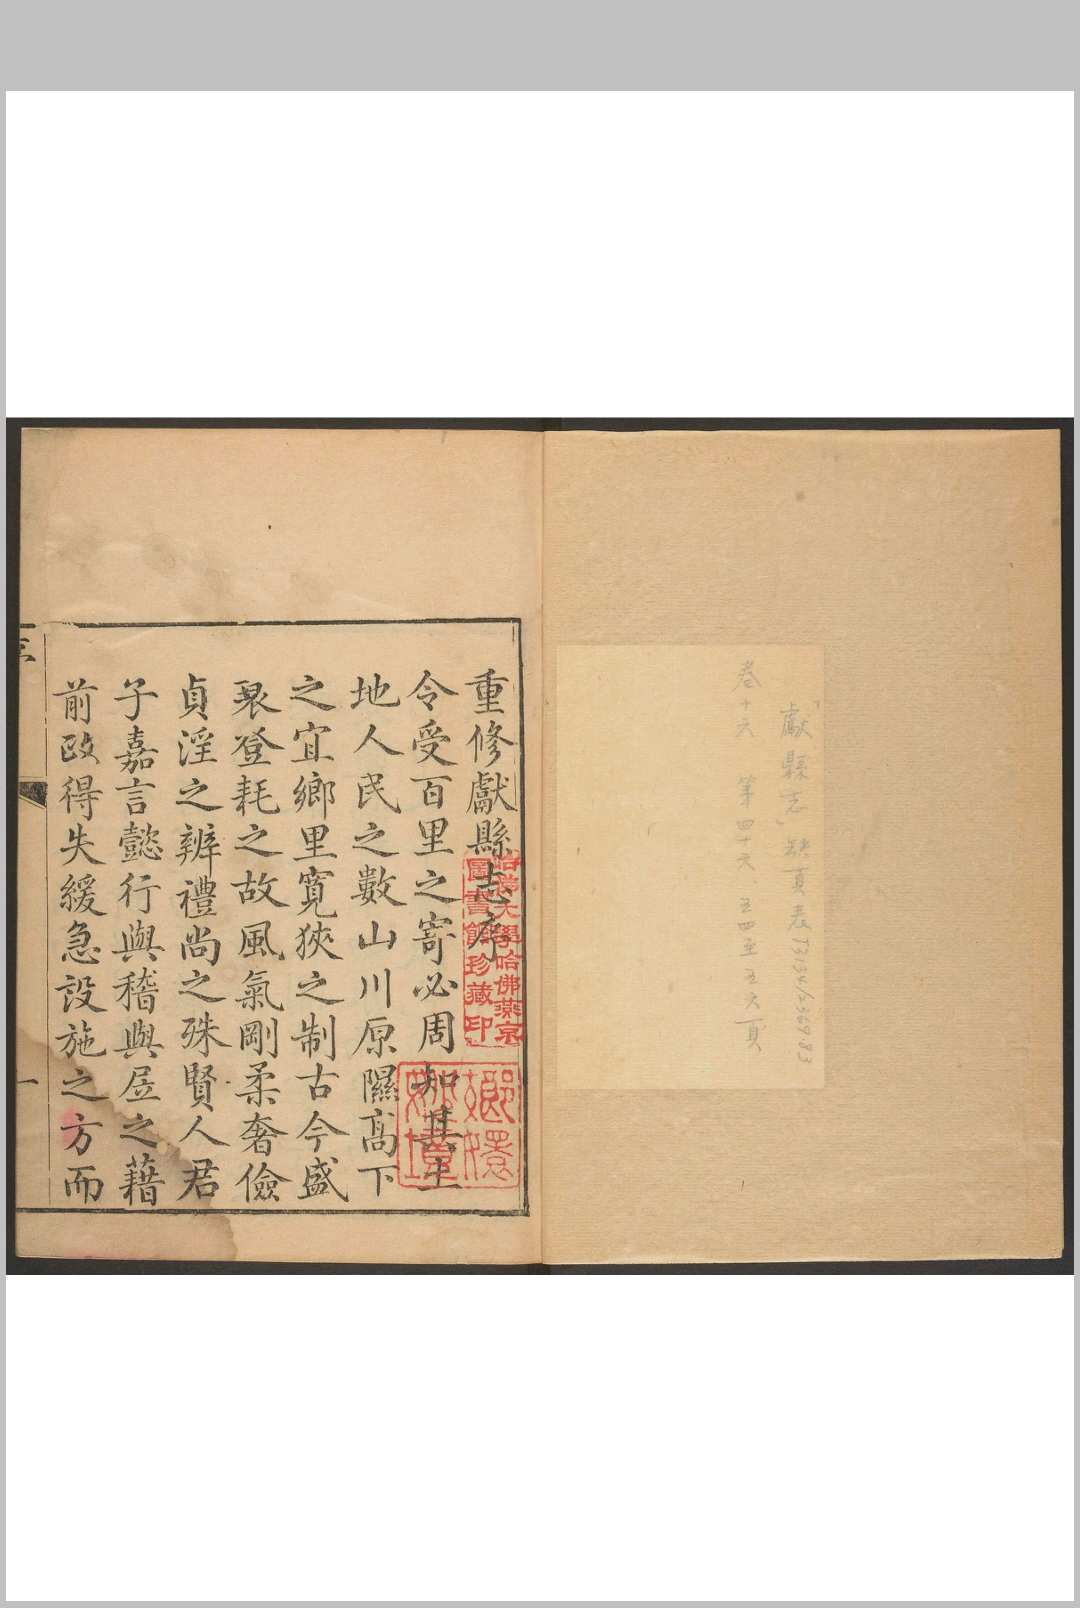 「獻縣志」缺頁表
卷十六 第四十六 五四至五六頁
重修獻縣志序
令受百里之寄必周知其土
地人民之數山川原隰高下
之宜鄉里寬狹之制古今盛
衰登耗之故風氣剛柔奢儉
貞淫之辨禮尚之殊賢人君
子嘉言懿行與稽與居之藉
前政得失緩急設施之方而
一
哈佛大學哈佛燕京
圖書館珍藏印
嫏嬛
妙境